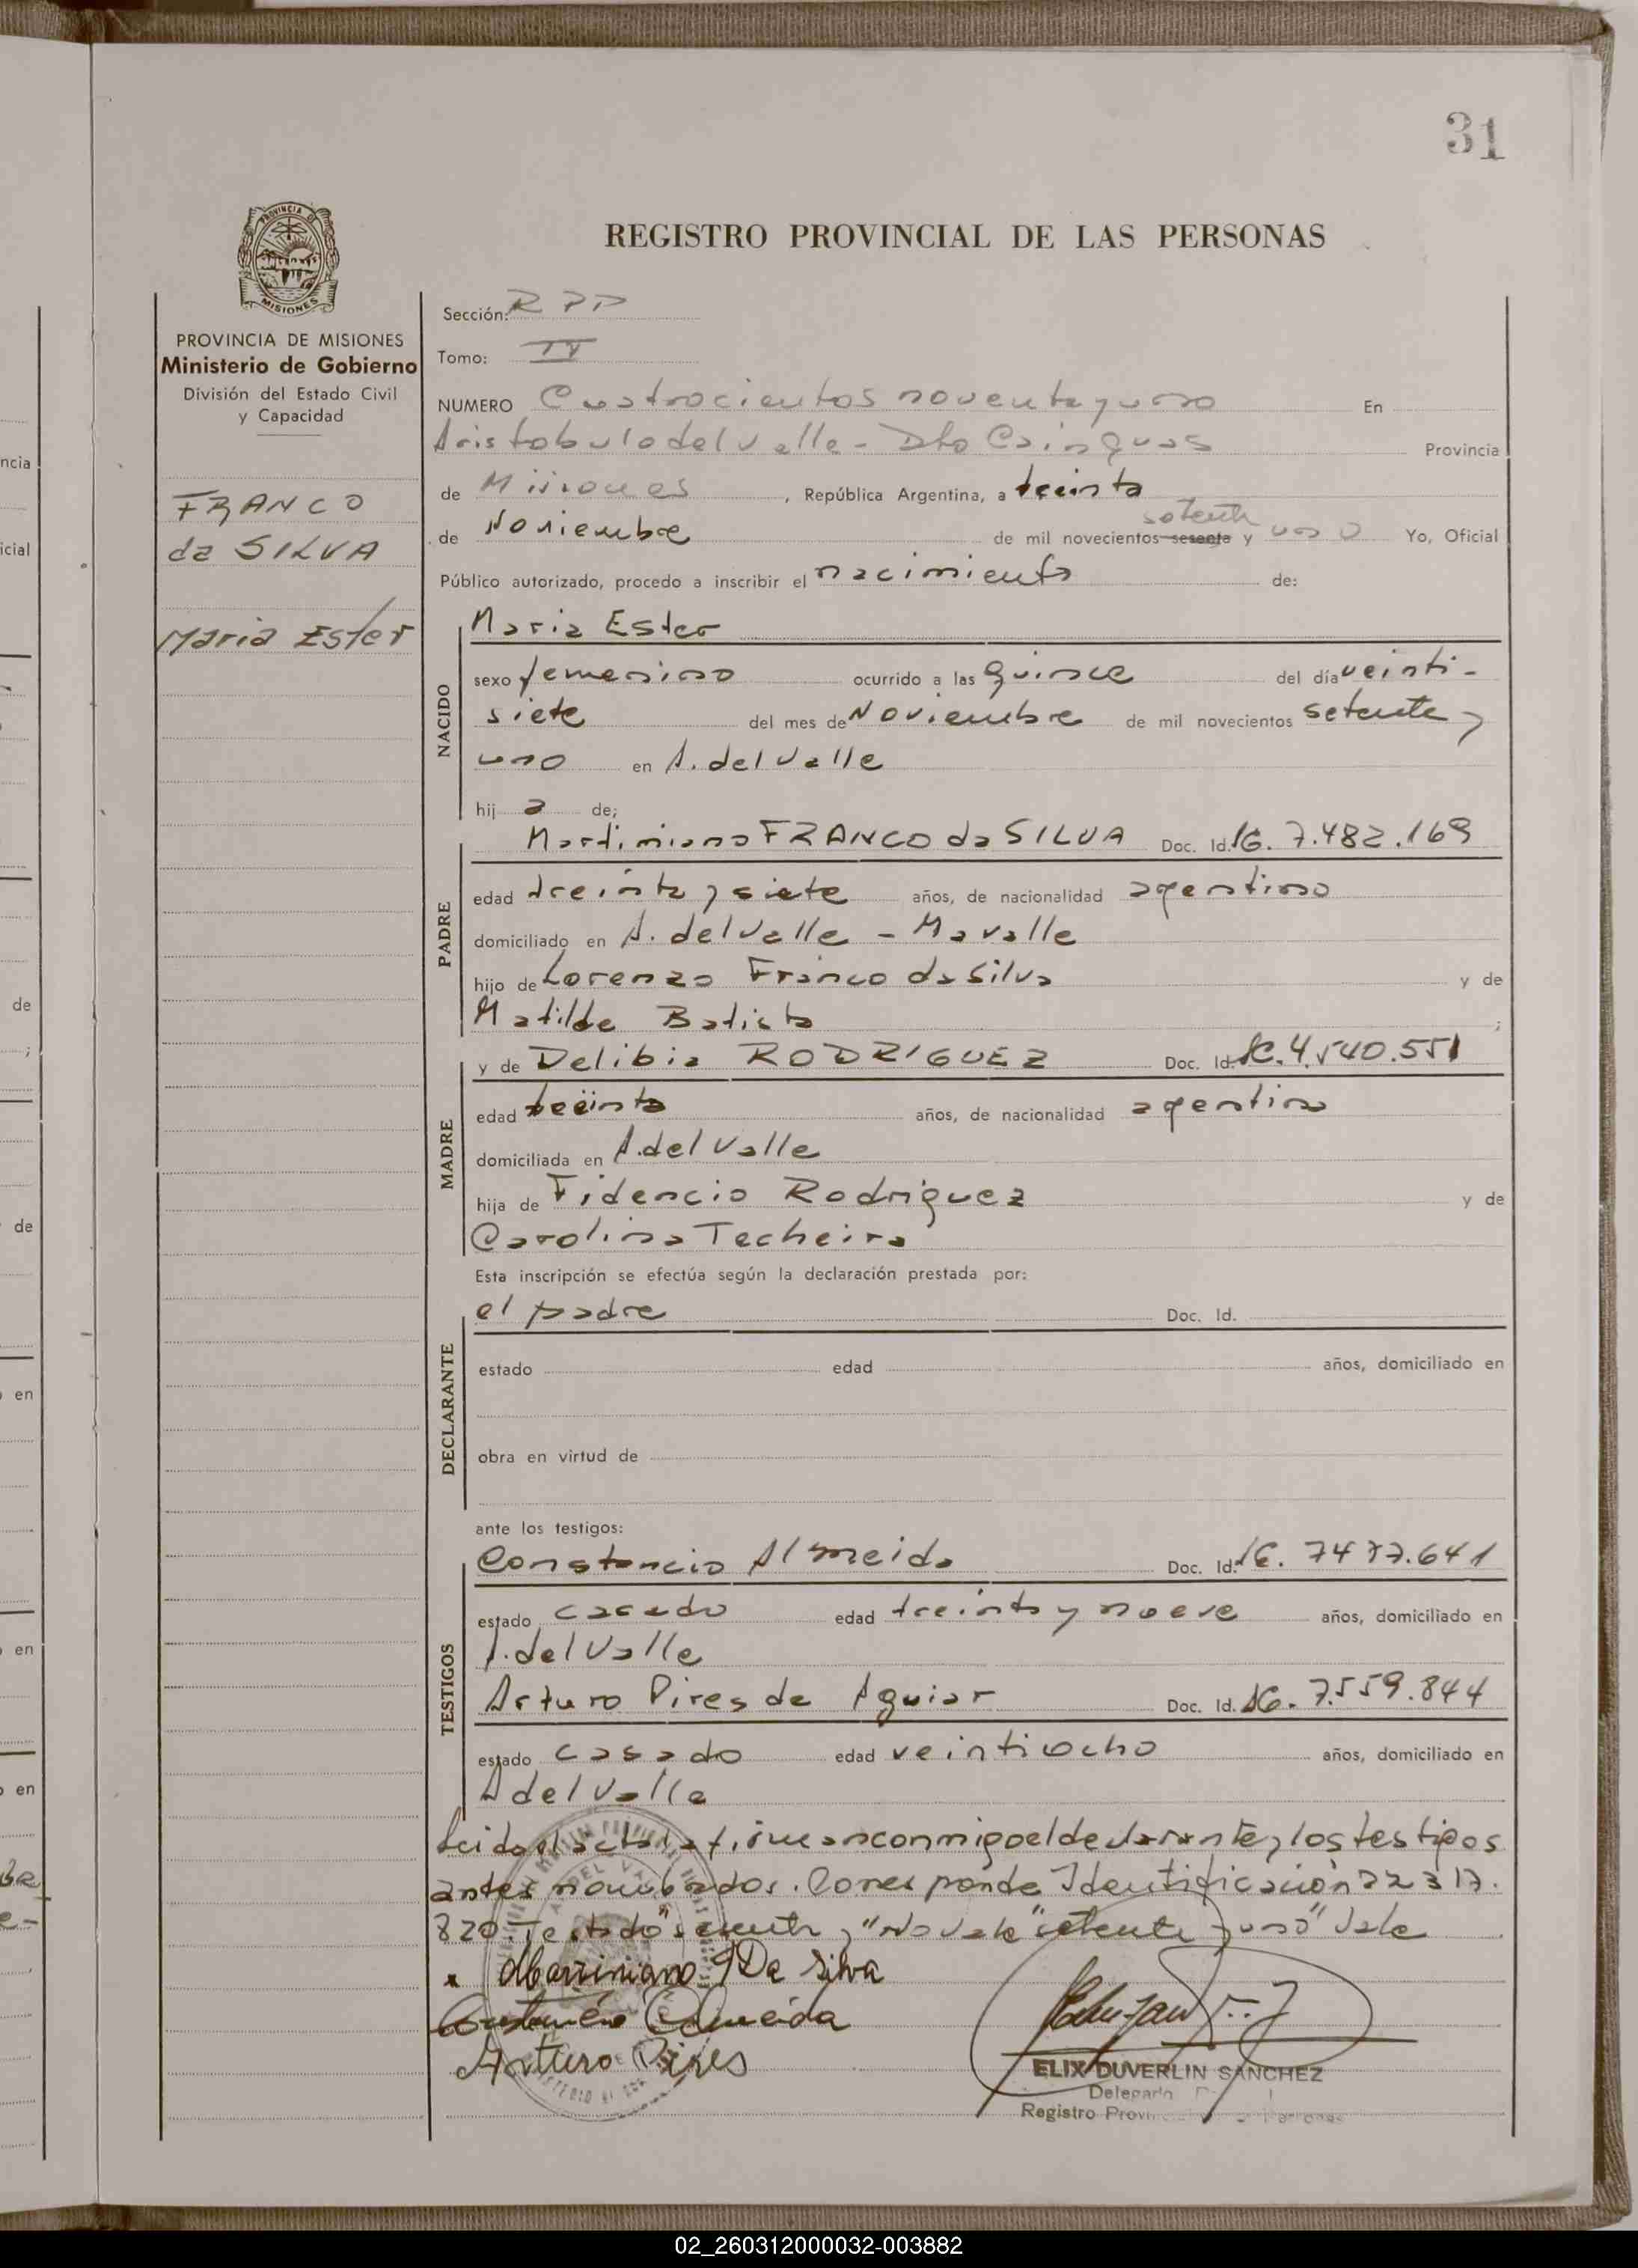 31
REGISTRO PROVINCIAL DE LAS PERSONAS
PROVINCIA DE MISIONES
Ministerio de Gobierno
División del Estado Civil
y Capacidad
FRANCO
da SILVA
Maria Ester
Sección:
Tomo:
NUMERO Cuatrocientos noventa y uno En
Aristobulo del Valle - Dto Cainguas Provincia
de Misiones, República Argentina, a treinta
setenta
de Noviembre de mil novecientos sesenta y uno Yo, Oficial
Público autorizado, procedo a inscribir el nacimiento de:
NACIDO
Maria Ester
sexo femenino ocurrido a las quince del día veinti-
siete del mes de Noviembre de mil novecientos setenta y
uno en A. del Valle
hij a de;
PADRE
Martimiano FRANCO da SILVA Doc. Id. 7.482.169
edad treinta y siete años, de nacionalidad agentino
domiciliado en A. del Valle - Mavalle
hijo de Lorenzo Franco da Silva y de
Matilde Batista ;
MADRE
y de Delibia RODRIGUEZ Doc. Id. 4.540.551
edad treinta años, de nacionalidad agentina
domiciliada en A. del Valle
hija de Fidencio Rodriguez y de
Carolina Techeira
Esta inscripción se efectúa según la declaración prestada por:
DECLARANTE
el padre Doc. Id.
estado edad años, domiciliado en
obra en virtud de
ante los testigos:
TESTIGOS
Constancio Almeida Doc. Id. 7477.641
estado casado edad treinta y nueve años, domiciliado en
A. del Valle
Arturo Pires de Aguiar Doc. Id. 7.559.844
estado casado edad veintiocho años, domiciliado en
A del Valle
Leida el acta la firman conmigo el declarante y los testigos
antes nombrados. Corresponde Identificación 22317.
820. Testado "sesenta y" No Vale "setenta y uno" Vale
Da Silva
Almeida
Arturo Pires
ELIX DUVERLIN SANCHEZ
Registro
02_260312000032-003882